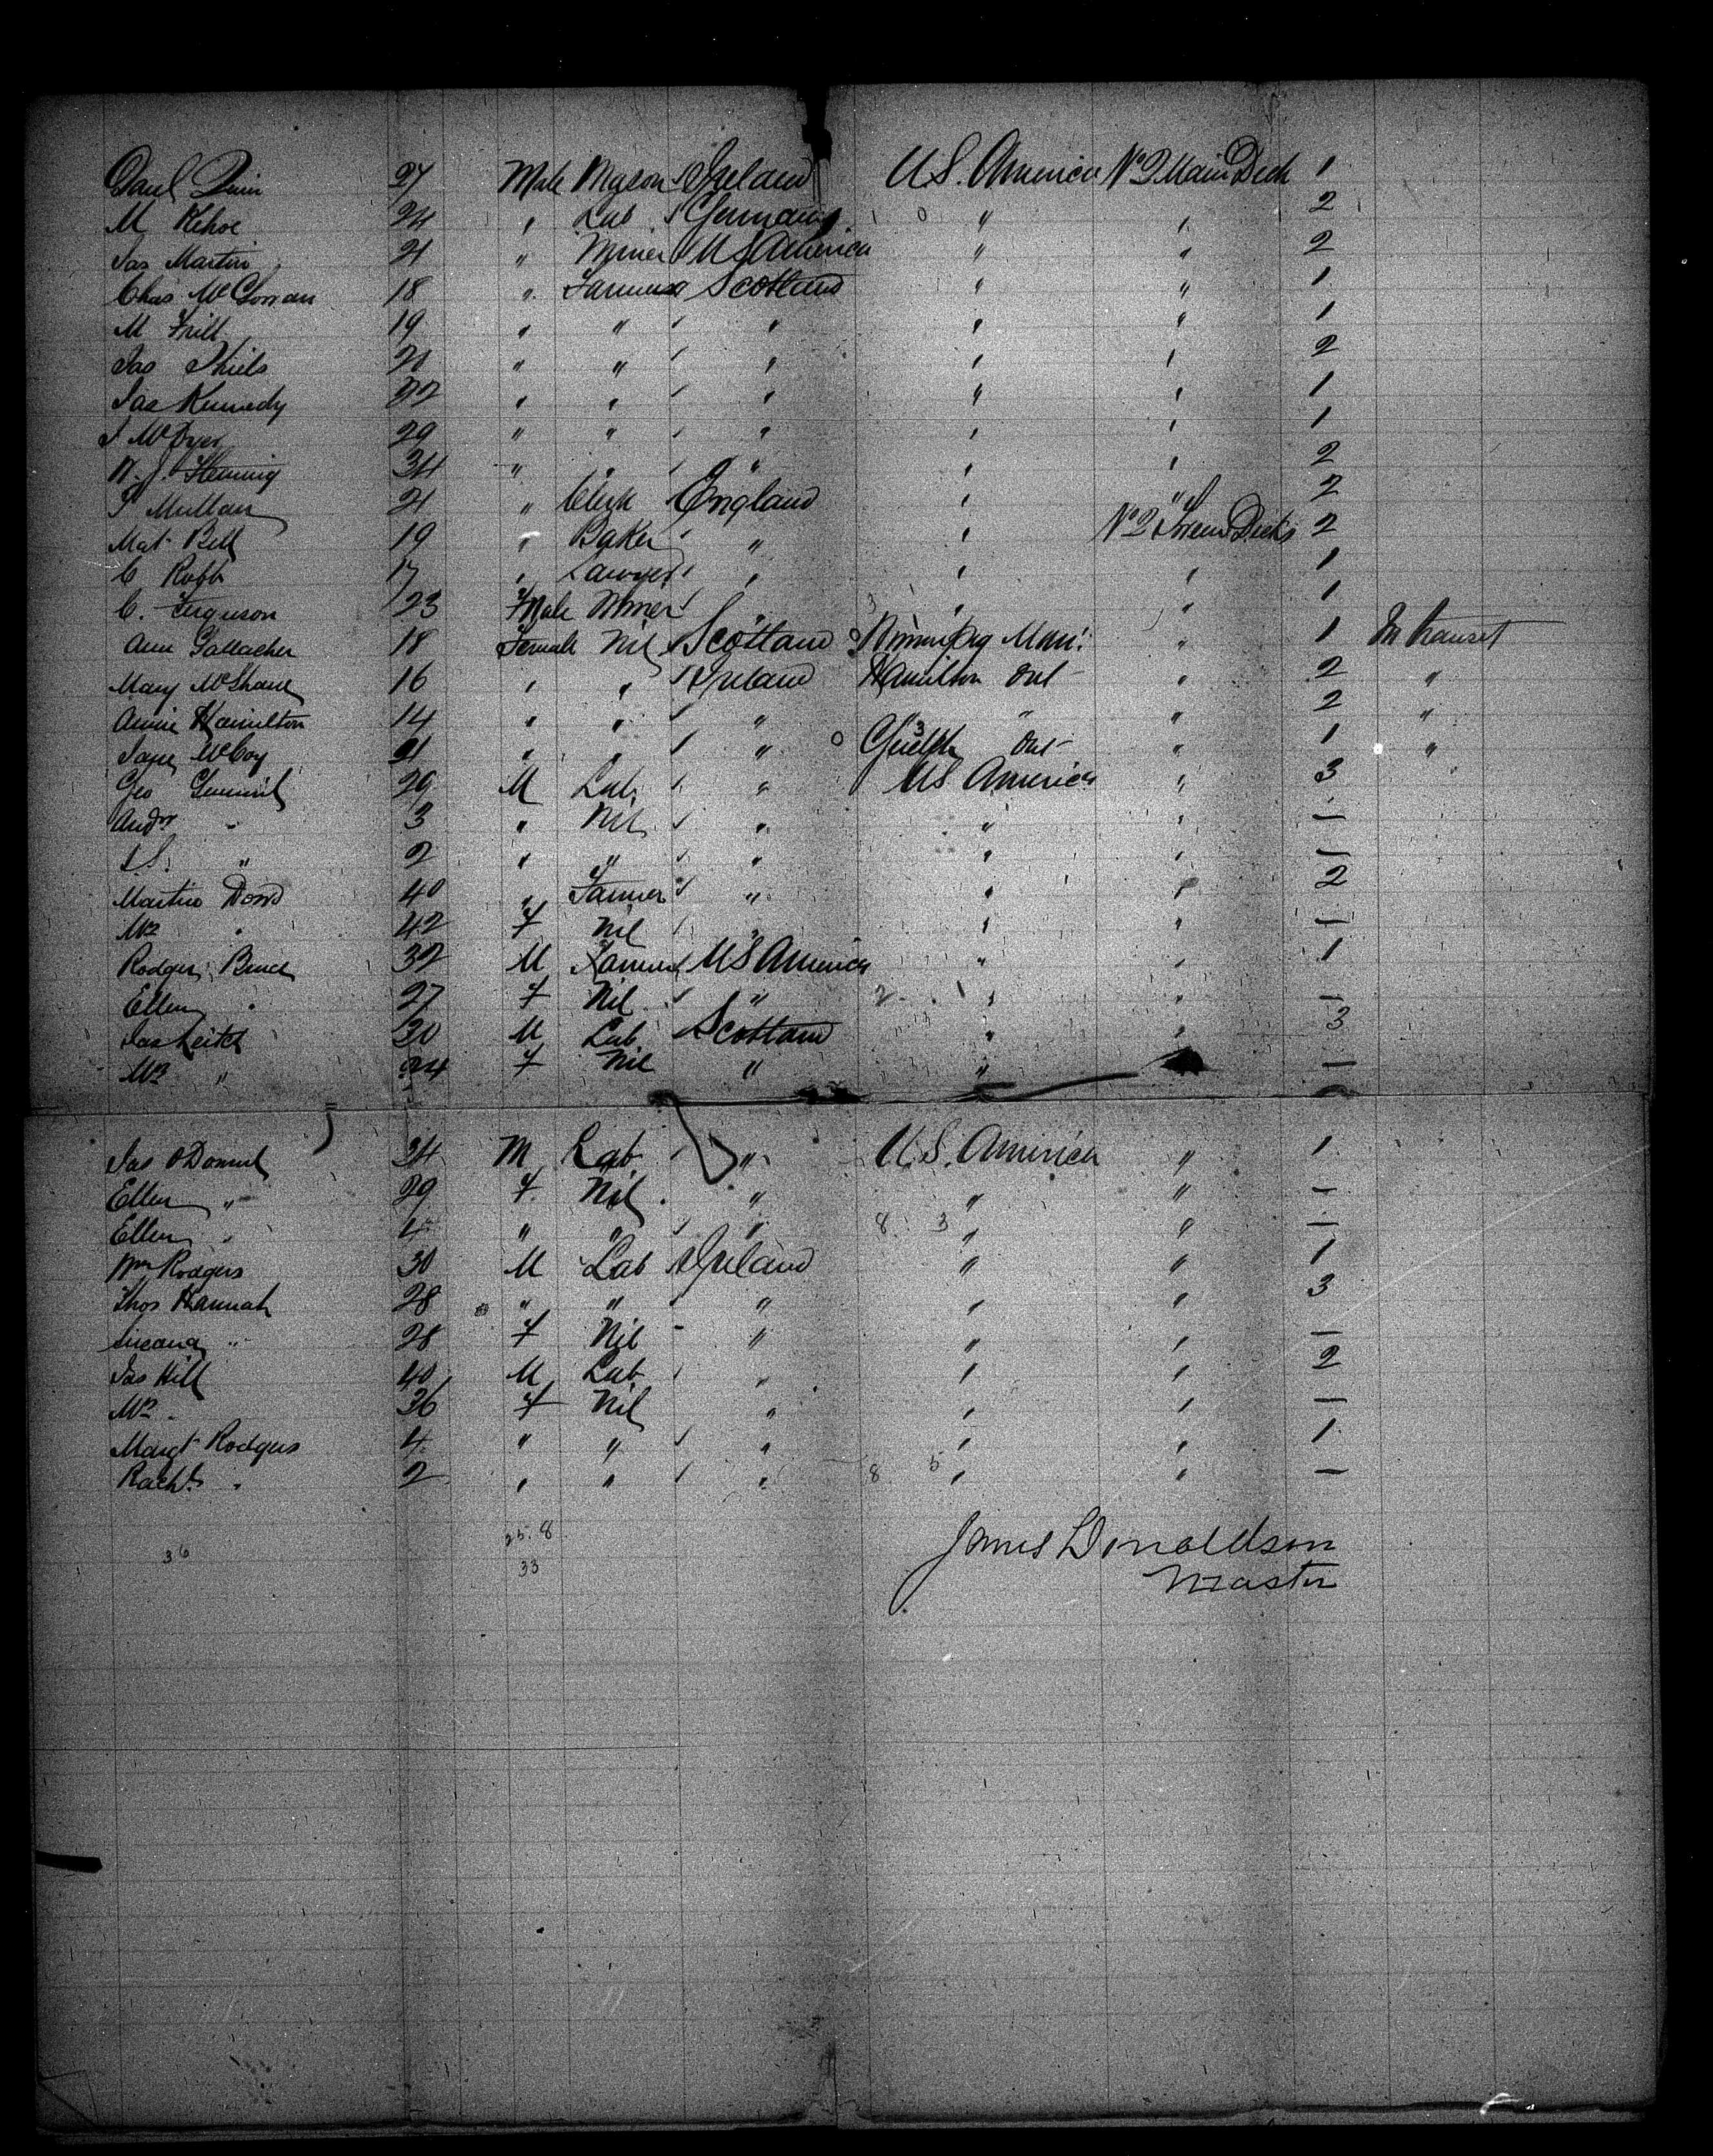 Quin 27 Male Mason Ireland U S. America No 2 Main Deck 1
M Kehoe 24 " Lab Germany " " 2
Jas Martin 21 " Miner U S America " " 2
Chas 18 " Farmer Scotland " " 1
M 19 " " " " " 1
Jas Shiels 21 " " " " " 2
Jas Kennedy 22 " " " " " 1
McDyer 29 " " " " " 1
W. J. Fleming 34 " " " " " 2
Mullan 21 " Clerk England " " 2
Mat Bell 19 " Baker " " No 2 Decks 2
C Robb 17 " Lawyer " " " 1
C. Ferguson 23 Male Miner " " " 1
Ann Gallacher 18 Female Nil Scotland Winnipeg Mani. " 1 In transit
Mary McShane 16 " " Ireland Hamilton Ont " 2 "
Annie Hamilton 14 " " " " " " 2 "
Jane McCoy 21 " " " Guelph Ont " 1 "
Geo 29 M Lab " U S America " 3
Andw " 3 " Nil " " " —
" 2 " " " " " —
Martin Dowd 40 " Farmer " " " 2
Mrs " 42 F Nil " " " —
Rodger Bruce 32 M Farmer U S America " " 1
Ellen " 27 F Nil " " " —
Jas Leitch 30 M Lab Scotland " " 3
Mrs " 24 F Nil " " " —
Jas O'Donnel 34 M Lab " U.S. America " 1
Ellen " 29 F. Nil " " " —
Ellen " 4 " " " " " —
Wm Rodgers 30 M Lab Ireland " " 1
Thos Hannah 28 " " " " " 3
Susana " 28 F Nil " " " —
Jas Hill 40 M Lab " " " 2
Mrs " 36 F Nil " " " —
Margt Rodgers 4 " " " " " 1
Rachl " 2 " " " " " —
25.8
36 33
James Donaldson
Master